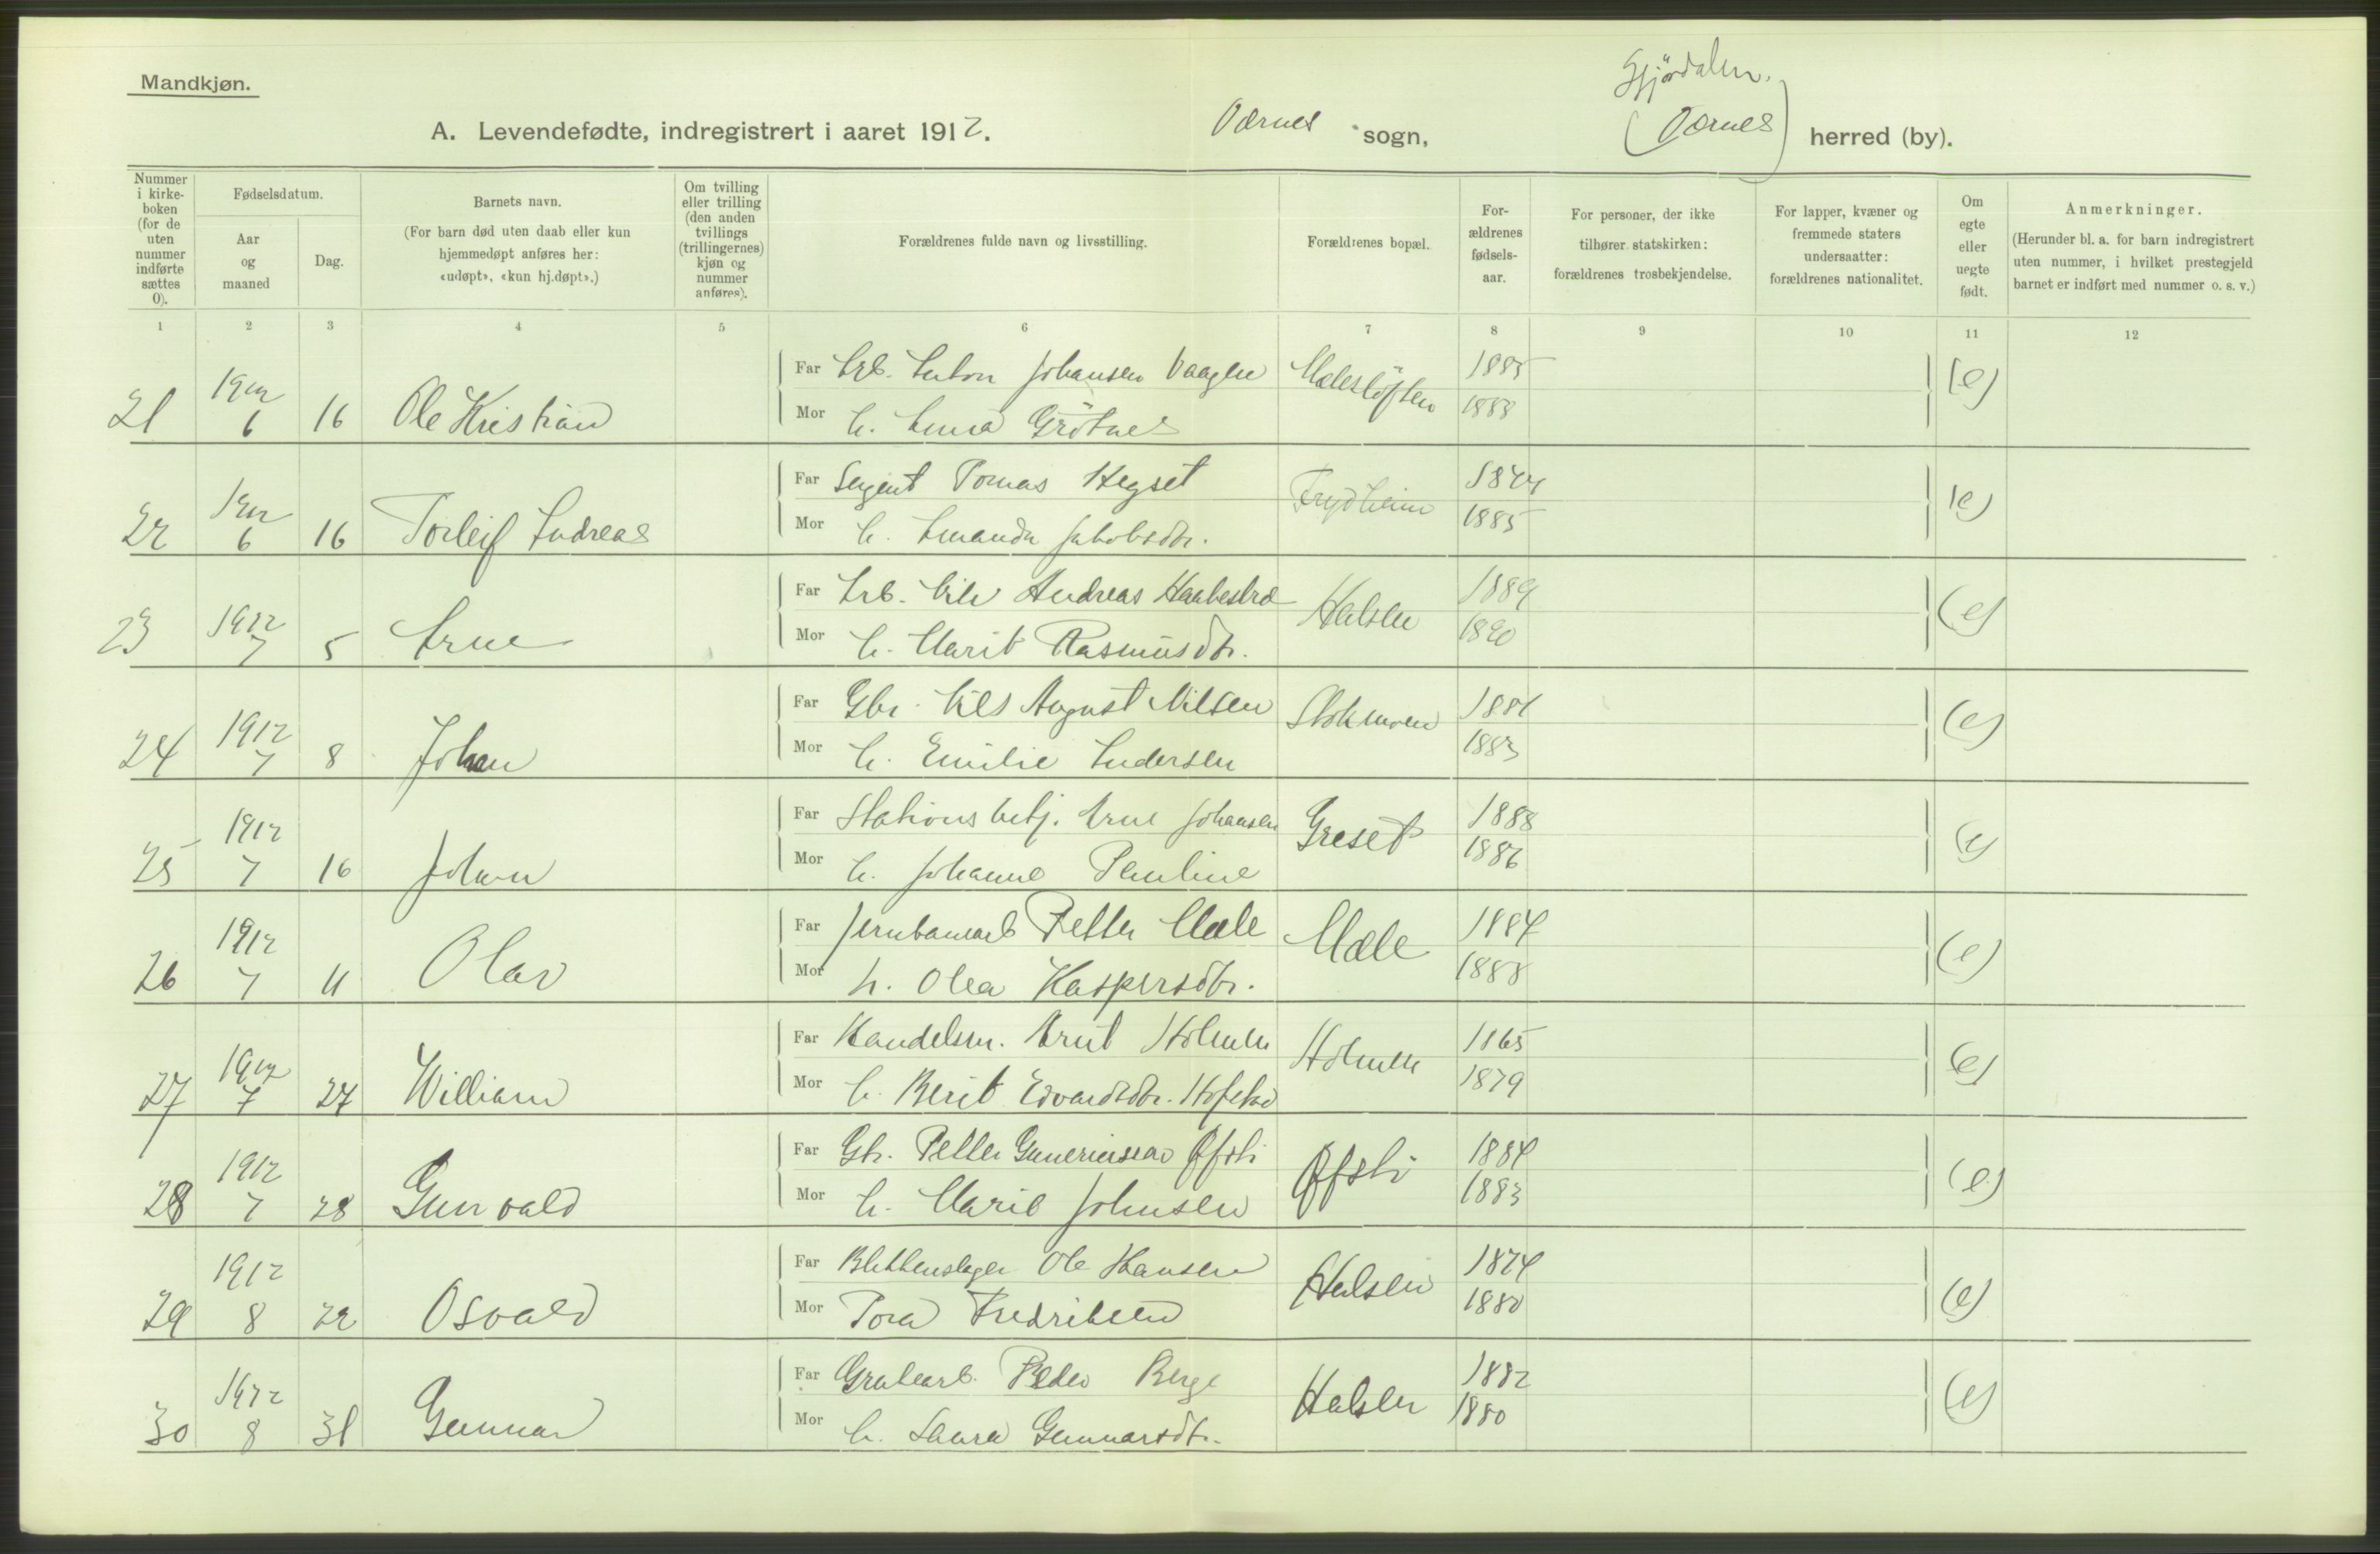 Mandkjøn.
A. Levendefødte, indregistrert i aaret 1912. Værnes sogn, (Værnes) herred (by).
Nummer i kirke-boken (for de uten nummer indførte sættes 0).
Fødselsdatum.
Aar og maaned
Dag.
Barnets navn.
(For barn død uten daab eller kun hjemmedøpt anføres her: «udøpt», «kun hj.døpt».)
Om tvilling eller trilling (den anden tvillings (trillingernes) kjøn og nummer anføres).
Forældrenes fulde navn og livsstilling.
Forældrenes bopæl.
For-ældrenes fødsels-aar.
For personer, der ikke tilhører statskirken: forældrenes trosbekjendelse.
For lapper, kvæner og fremmede staters undersaatter: forældrenes nationalitet.
Om egte eller uegte født.
Anmerkninger.
(Herunder bl. a. for barn indregistrert uten nummer, i hvilket prestegjeld barnet er indført med nummer o. s. v.)
1 2 3 4 5 6 7 8 9 10 11 12
21 1912 6 16 Ole Kristian
Far Arb. Anton Johansen Vaagen 1885 (e)
Mor h. Anna Grötnes 1883
22 1912 6 16 Torleif Andreas
Far Sergent Tomas Hegset Frydheim (e)
Mor h. Amanda Jakobsdtr. 1885
23 1912 7 5 Arne
Far Arb. Nils Andreas Halsen 1889 (e)
Mor h. Marit Rasmusdtr. 1890
24 1912 7 8 Johan
Far Gbr. Nils August Nilsen Stokmoen 1881 (e)
Mor h. Emilie Andersen 1883
25 1912 7 16 Johan
Far Stationsbetj. Arne Johansen Græset 1888 (e)
Mor h. Johanne Pauline 1886
26 1912 7 11 Olav
Far Jernbanearb Petter Mæle Mæle 1884 (e)
Mor h. Olea Kaspersdtr. 1888
27 1912 7 27 William
Far Handelsm. Arnt Holmen Holmen 1865 (e)
Mor h. Berit Edvardsdtr. 1879
28 1912 7 28 Gunvald
Far Gbr. Petter Øfsti Øfsti 1884 (e)
Mor h. Marie Johnsen 1883
29 1912 8 22 Osvald
Far Blikkenslager Ole Hansen Halsen 1874 (e)
Mor Tora Fredriksen 1880
30 1912 8 31 Gunnar
Far Grubearb. Peder Berge Halsen 1882 (e)
Mor h. Laura Gunnarsdtr. 1880